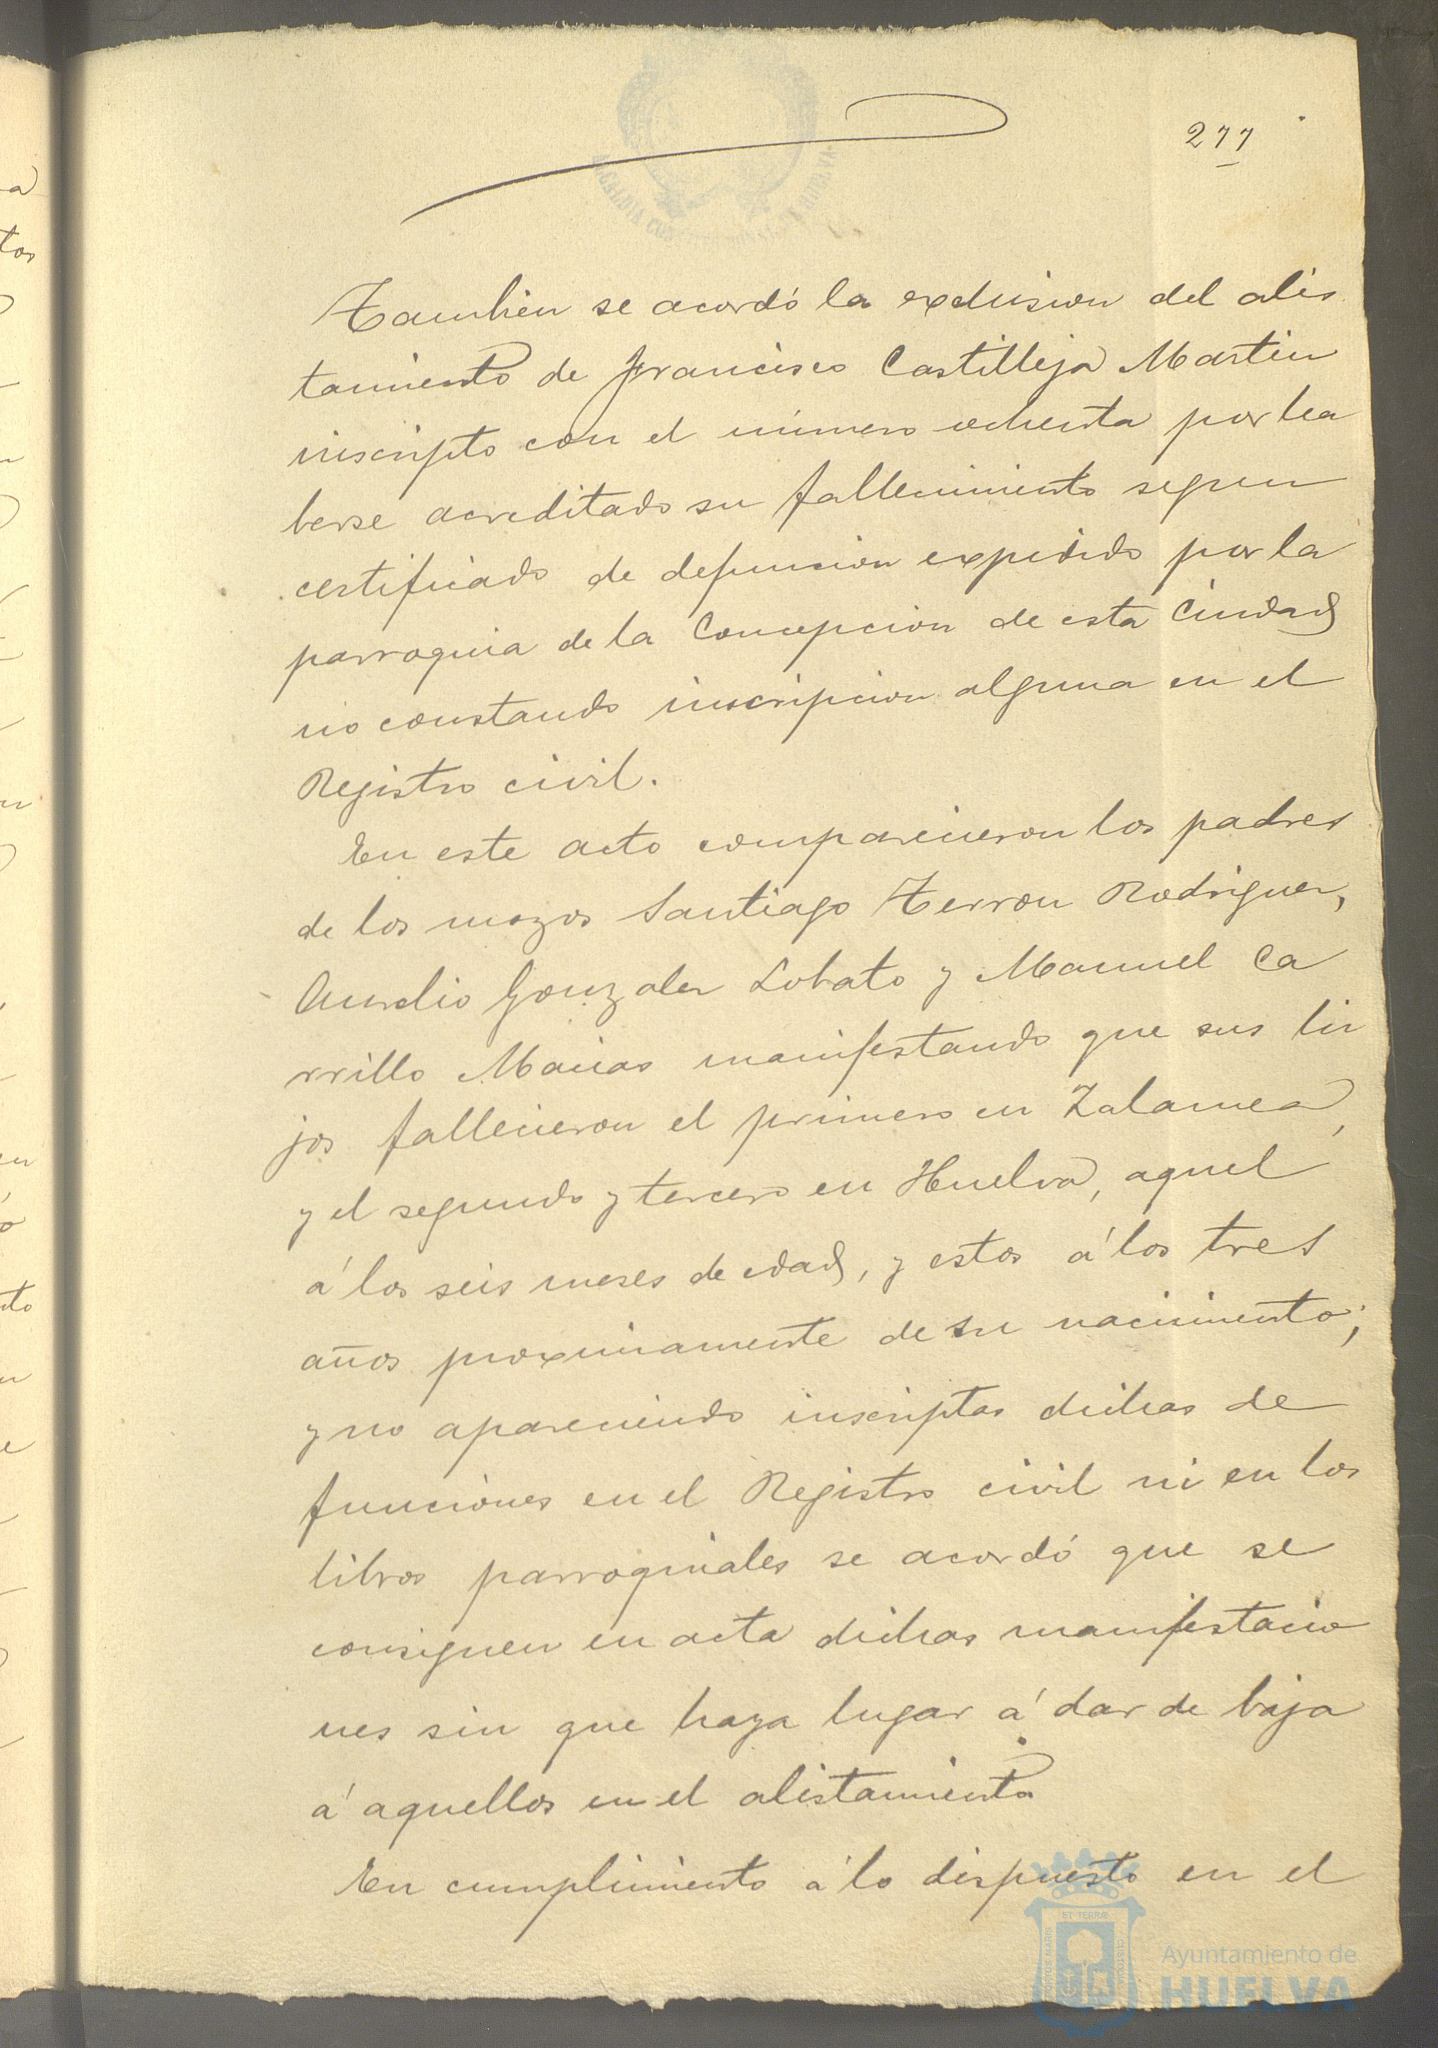 277
Tambien se acordó la exclusion del alis
tamiento de Francisco Castilleja Martin
inscripto con el número ochenta por ha
berse acreditado su fallecimiento segun
certificado de defuncion expedido por la
parroquia de la Concepcion de esta Ciudad
no constando inscripcion alguna en el
Registro civil.
En este acto comparecieron los padres
de los mozos Santiago Terron Rodriguez,
Aurelio Gonzalez Lobato y Manuel Ca
rrillo Macias manifestando que sus hi
jos fallecieron el primero en Zalamea,
y el segundo y tercero en Huelva, aquel
á los seis meses de edad, y estos á los tres
años proximamente de su nacimiento;
y no apareciendo inscriptas dichas de
funciones en el Registro civil ni en los
libros parroquiales se acordó que se
consignen en acta dichas manifestacio
nes sin que haya lugar á dar de baja
á aquellos en el alistamiento
En cumplimiento á lo dispuesto en el
Ayuntamiento de
HUELVA